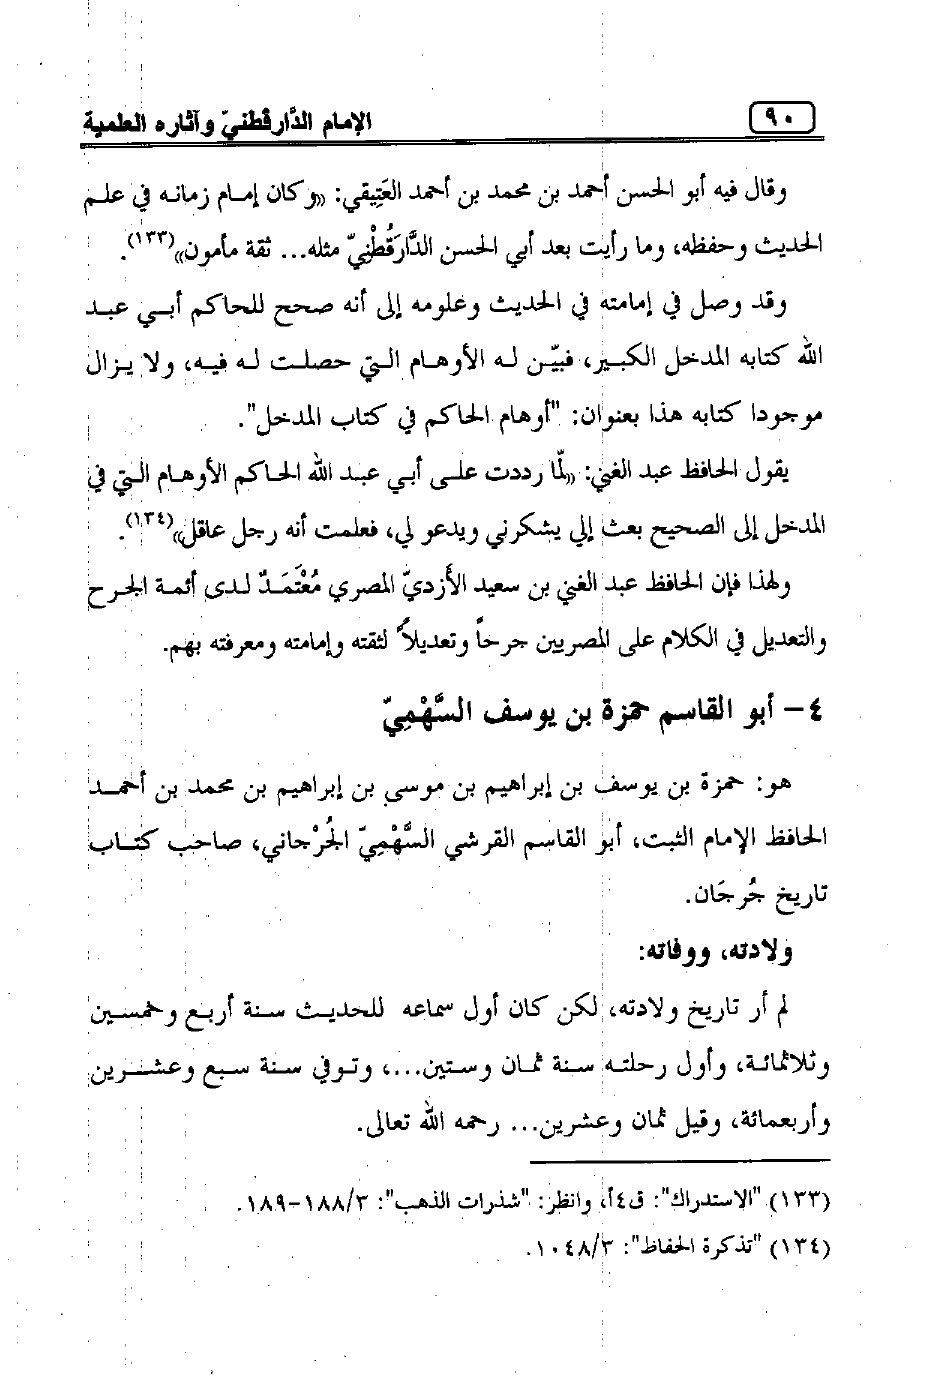 ٩٠
الإمام الدَّارقُطنيّ وآثاره العلمية
وقال فيه أبو الحسن أحمد بن محمد بن أحمد العَتِيقي: «وكان إمام زمانه في علم
الحديث وحفظه، وما رأيت بعد أبي الحسن الدَّارَقُطْنِيّ مثله... ثقة مأمون»(١٣٣).
وقد وصل في إمامته في الحديث وعلومه إلى أنه صحح للحاكم أبي عبد
الله كتابه المدخل الكبير، فبيّن له الأوهام التي حصلت له فيه، ولا يزال
موجودا كتابه هذا بعنوان: "أوهام الحاكم في كتاب المدخل".
يقول الحافظ عبد الغني: «لمّا رددت على أبي عبد الله الحاكم الأوهام التي في
المدخل إلى الصحيح بعث إلي يشكرني ويدعو لي، فعلمت أنه رجل عاقل»(١٣٤).
ولهذا فإن الحافظ عبد الغني بن سعيد الأَزديّ المصري مُعْتَمَدٌ لدى أئمة الجرح
والتعديل في الكلام على المصريين جرحاً وتعديلاً لثقته وإمامته ومعرفته بهم.
٤- أبو القاسم حمزة بن يوسف السَّهْمِيّ
هو: حمزة بن يوسف بن إبراهيم بن موسى بن إبراهيم بن محمد بن أحمد
الحافظ الإمام الثبت، أبو القاسم القرشي السَّهْمِيّ الجُرْجاني، صاحب كتاب
تاريخ جُرجَان.
ولادته، ووفاته:
لم أر تاريخ ولادته، لكن كان أول سماعه للحديث سنة أربع وخمسين
وثلاثمائة، وأول رحلته سنة ثمان وستين...، وتوفي سنة سبع وعشرين
وأربعمائة، وقيل ثمان وعشرين... رحمه الله تعالى.
(١٣٣) "الاستدراك": ق٤أ، وانظر: "شذرات الذهب": ١٨٨/٣-١٨٩.
(١٣٤) "تذكرة الحفاظ": ١٠٤٨/٣.